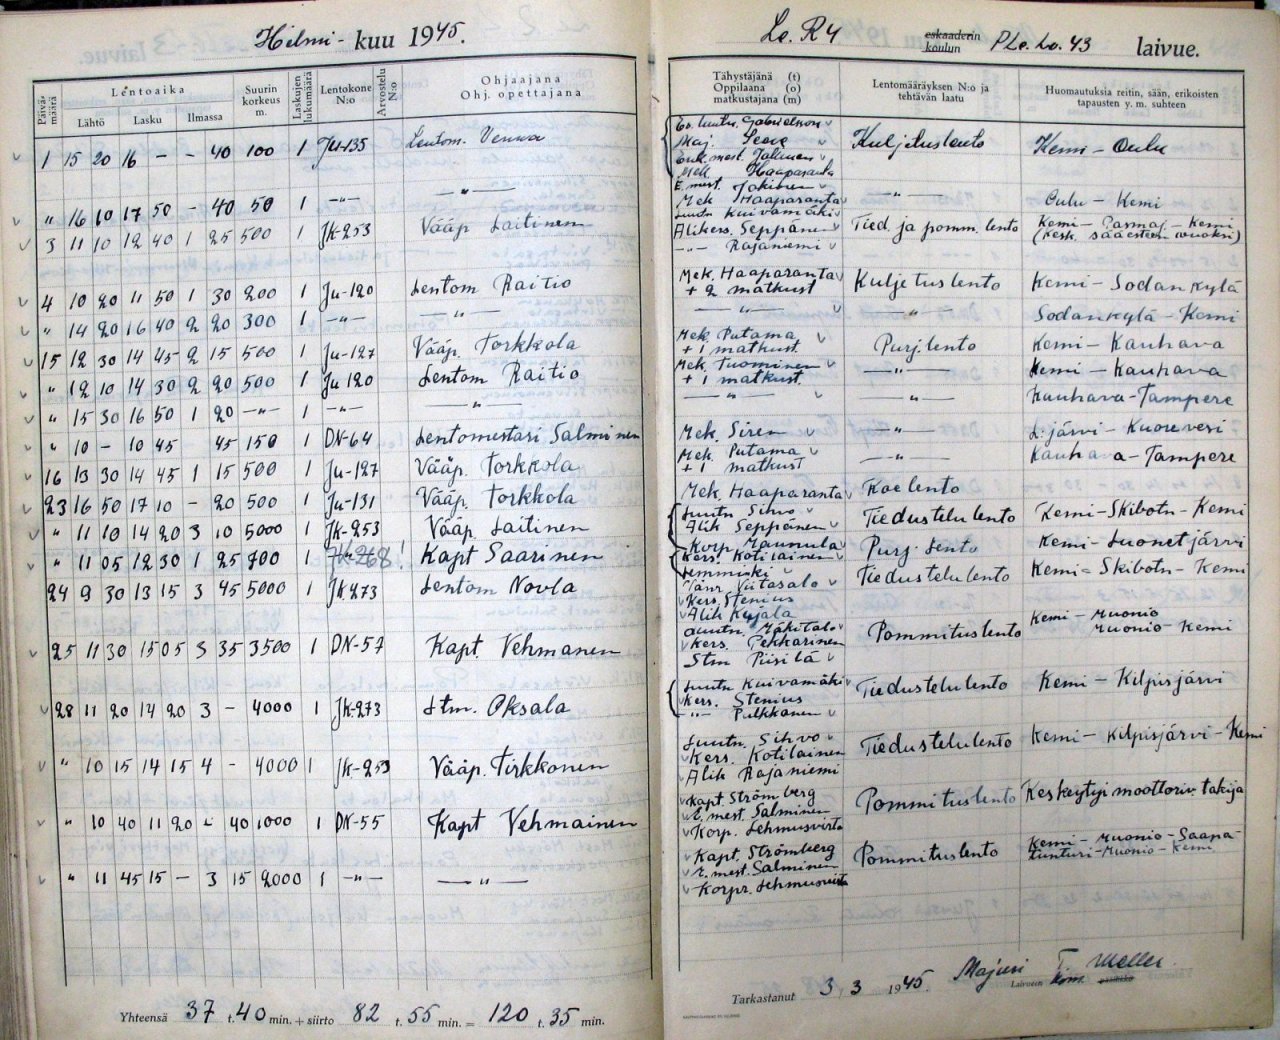 Helmi- kuu 1945.
Päivä-määrä
Lentoaika
Lähtö Lasku Ilmassa
Suurin korkeus m.
Laskujen lukumäärä
Lentokone N:o
Arvostelu N:o
Ohjaajana
Ohj. opettajana
1 15 20 16 – – 40 100 1 Ju-135 Lentom. Venna
" 16 10 17 50 – 40 50 1 –"– –"–
3 11 10 12 40 1 25 500 1 JK-253 Vääp Laitinen
4 10 20 11 50 1 30 200 1 Ju-120 Lentom Raitio
" 14 20 16 40 2 20 300 1 –"– –"–
15 12 30 14 45 2 15 500 1 Ju-127 Vääp. Torkkola
" 12 10 14 30 2 20 500 1 Ju 120 Lentom Raitio
" 15 30 16 50 1 20 –"– 1 –"– –"–
" 10 – 10 45 45 150 1 DN-64 Lentomestari Salminen
16 13 30 14 45 1 15 500 1 Ju-127 Vääp. Torkkola
23 16 50 17 10 – 20 500 1 Ju-131 Vääp. Torkkola
" 11 10 14 20 3 10 5000 1 JK-253 Vääp. Laitinen
" 11 05 12 30 1 25 700 1 JK-268 ! Kapt Saarinen
24 9 30 13 15 3 45 5000 1 JK 273 Lentom Novla
25 11 30 15 05 3 35 3500 1 DN-57 Kapt. Vehmanen
28 11 20 14 20 3 – 4000 1 JK-273 Ltm. Oksala
" 10 15 14 15 4 – 4000 1 JK-253 Vääp. Tirkkonen
" 10 40 11 20 – 40 1000 1 DN-55 Kapt Vehmainen
" 11 45 15 – 3 15 2000 1 –"– –"–
Yhteensä 37 t. 40 min. + siirto 82 t. 55 min. = 120 t. 35 min.
Le. R4 eskaaderin koulun PLe. Lv. 43 laivue.
Tähystäjänä (t)
Oppilaana (o)
matkustajana (m)
Lentomääräyksen N:o ja
tehtävän laatu
Huomautuksia reitin, sään, erikoisten
tapausten y. m. suhteen
Ev. luutn. Gabrielson
Maj. Seeve
Mek Haaparanta
Kuljetuslento Kemi – Oulu
E. mest. Jokinen
Mek Haaparanta –"– Oulu – Kemi
Luutn Kuivamäki
Alikers. Seppänen Tied. ja pomm. lento Kemi – Parmaj – Kemi
–"– Rajaniemi (Kesk. sääesteen vuoksi)
Mek. Haaparanta
+ 2 matkust Kuljetuslento Kemi – Sodankylä
–"– –"– Sodankylä – Kemi
Mek Putama
+ 1 matkust. Purj. lento Kemi – Kauhava
Mek. Tuominen
+ 1 matkust. –"– Kemi – Kauhava
–"– –"– Kauhava – Tampere
Mek. Siren –"– L. järvi – Kuorevesi
Mek. Putama
+ 1 matkust –"– Kauhava – Tampere
Mek. Haaparanta Koelento
Luutn Sihvo
Alik Seppänen Tiedustelulento Kemi – Skibotn – Kemi
Korp. Maunula
Kers. Kotilainen Purj. Lento Kemi – Luonetjärvi
Lemmiuki
Vänr. Viitasalo Tiedustelulento Kemi – Skibotn – Kemi
Kers. Stenius
Alik Kujala
Luutn Mäkitalo
Kers. Pekkarinen Pommituslento Kemi – Muonio
Muonio – Kemi
Stm Piisilä
Luutn Kuivamäki
Kers. Stenius Tiedustelulento Kemi – Kilpisjärvi
–"– Pulkkanen
Luutn. Sihvo
Kers. Kotilainen Tiedustelulento Kemi – Kilpisjärvi – Kemi
Alik Rajaniemi
Kapt. Strömberg
L. mest. Salminen Pommituslento Keskeytyi moottoriv. takija
Korp. Lehmusvirta
Kapt. Strömberg
L. mest. Salminen Pommituslento Kemi – Muonio – Saapa-
tunturi – Muonio – Kemi
Korpr. Lehmusvirta
Tarkastanut 3/3 1945. Majuri T. Meller.
Laivueen kom. päällikkö